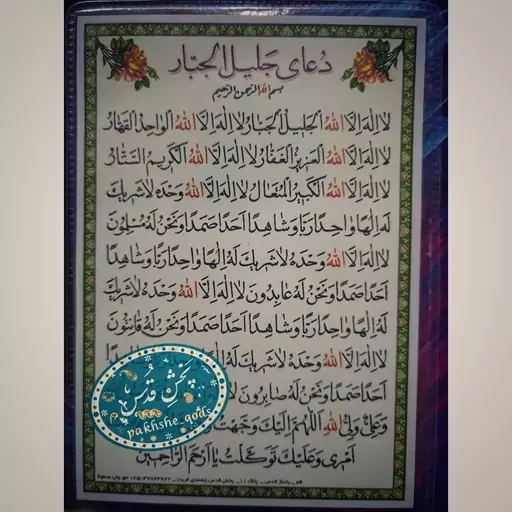 دعای جلیل الجبار
بسم الله الرحمن الرحیم
لا اِلٰهَ اِلَّا اللهُ الْجَلیلُ الْجَبّارُ لا اِلٰهَ اِلَّا اللهُ الْواحِدُ الْقَهّارُ
لا اِلٰهَ اِلَّا اللهُ الْعَزیزُ الْغَفّارُ لا اِلٰهَ اِلَّا اللهُ الْکَریمُ السَّتّارُ
لا اِلٰهَ اِلَّا اللهُ الْکَبیرُ الْمُتَعالُ لا اِلٰهَ اِلَّا اللهُ وَحْدَهُ لا شَریكَ
لَهُ اِلٰهاً واحِداً رَبّاً وَ شاهِداً اَحَداً صَمَداً وَ نَحْنُ لَهُ مُسْلِمُونَ
لا اِلٰهَ اِلَّا اللهُ وَحْدَهُ لا شَریكَ لَهُ اِلٰهاً واحِداً رَبّاً وَ شاهِداً
اَحَداً صَمَداً وَ نَحْنُ لَهُ عابِدُونَ لا اِلٰهَ اِلَّا اللهُ وَحْدَهُ لا شَریكَ
لَهُ اِلٰهاً واحِداً رَبّاً وَ شاهِداً اَحَداً صَمَداً وَ نَحْنُ لَهُ قانِتُونَ
لا اِلٰهَ اِلَّا اللهُ وَحْدَهُ لا شَریكَ لَهُ
اَحَداً صَمَداً وَ نَحْنُ لَهُ صابِرُونَ
وَ عَلِیٌّ وَلِیُّ اللهِ اَللّٰهُمَّ اِلَیْكَ وَجَّهْتُ
اَمْری وَ عَلَیْكَ تَوَکَّلْتُ یا اَرْحَمَ الرّاحِمینَ
پخش قدس
pakhshe_qods